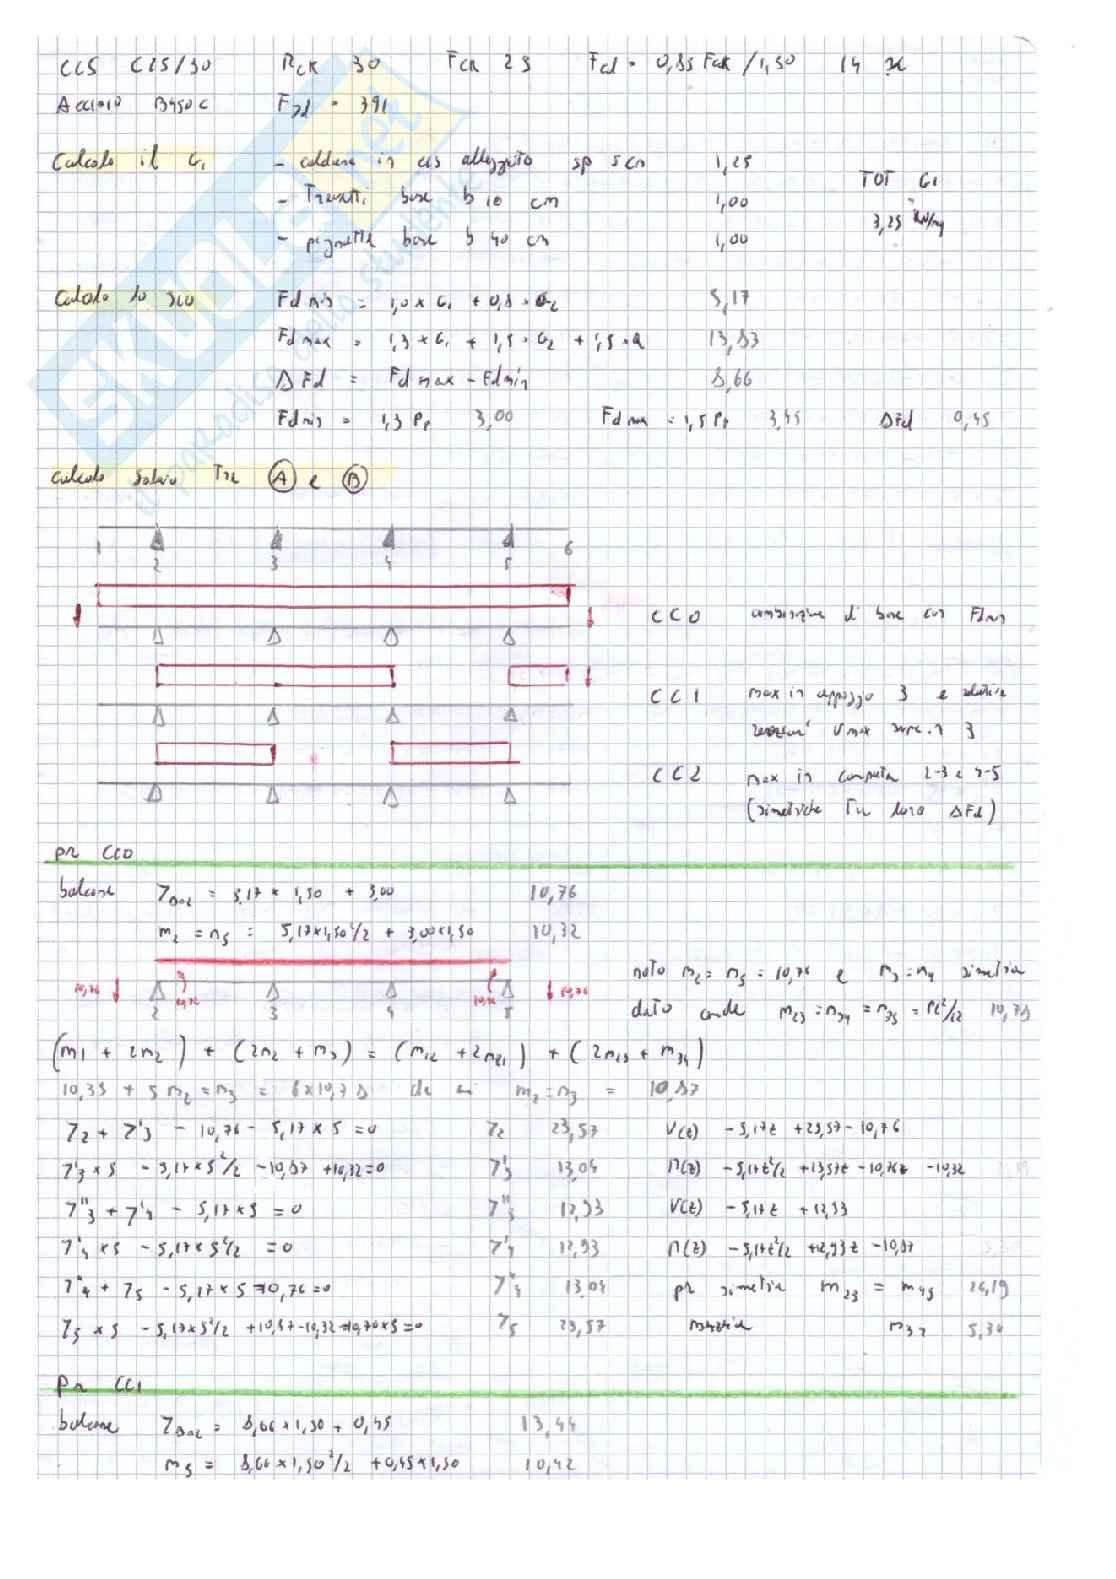 CLS C25/30 RCK 30 FCK 25 Fcd = 0,85 Fck /1,50 14
Acciaio B450C Fyd = 391
Calcolo il G1 - caldana in cls alleggerito sp 5cm 1,25
- Travetti base b 10 cm 1,00
- pignatte base b 40 cm 1,00
TOT G1
3,25 kN/mq
Calcolo lo SLU Fd min = 1,0 x G1 + 0,8 · G2 5,17
Fd max = 1,3 x G1 + 1,5 · G2 + 1,5 · Q 13,83
Δ Fd = Fd max - Fd min 8,66
Fd min = 1,3 Pp 3,00 Fd max = 1,5 Pp 3,45 ΔFd 0,45
Calcolo Solaio Tra A e B
1 2 3 4 5 6
CC0 combinazione di base con Fdmin
CC1 max in appoggio 3 e relative
reazioni Vmax 3
CC2 max in campata 2-3 e 4-5
(simmetriche Tra loro ΔFd)
per CC0
balcone Zbal = 5,17 x 1,50 + 3,00 10,76
m2 = m5 = 5,17x1,50²/2 + 3,00x1,50 10,32
noto m2 = m5 = 10,76 e m3 = m4 simetria
10,76 2 3 4 5 10,76
dato m23 = m34 = m35 = Pl²/12 10,78
(m1 + 2m2) + (2m2 + m3) = (m12 + 2m21) + (2m23 + m34)
10,33 + 5 m2 = m3 = 6x10,78 da cui m2 = m3 = 10,87
Z2 + Z'3 - 10,76 - 5,17 x 5 = 0 Z2 23,57 V(z) - 5,17z + 23,57 - 10,76
Z'3 x 5 - 5,17x5²/2 - 10,87 + 10,32 = 0 Z'3 13,04 M(z) - 5,17z²/2 + 23,57z - 10,76z - 10,32
Z"3 + Z'4 - 5,17 x 5 = 0 Z"3 12,93 V(z) - 5,17z + 12,93
Z'4 x 5 - 5,17x5²/2 = 0 Z'4 12,93 M(z) - 5,17z²/2 + 12,93z - 10,87
Z"4 + Z5 - 5,17 x 5 - 10,76 = 0 Z"4 13,04 per simetria m23 = m45
Z5 x 5 - 5,17x5²/2 + 10,87 - 10,32 - 10,76x5 = 0 Z5 23,57 5,30
Per CC1
balcone Zbal = 8,66 x 1,50 + 0,45 13,44
m5 = 8,66 x 1,50²/2 + 0,45 x 1,50 10,42